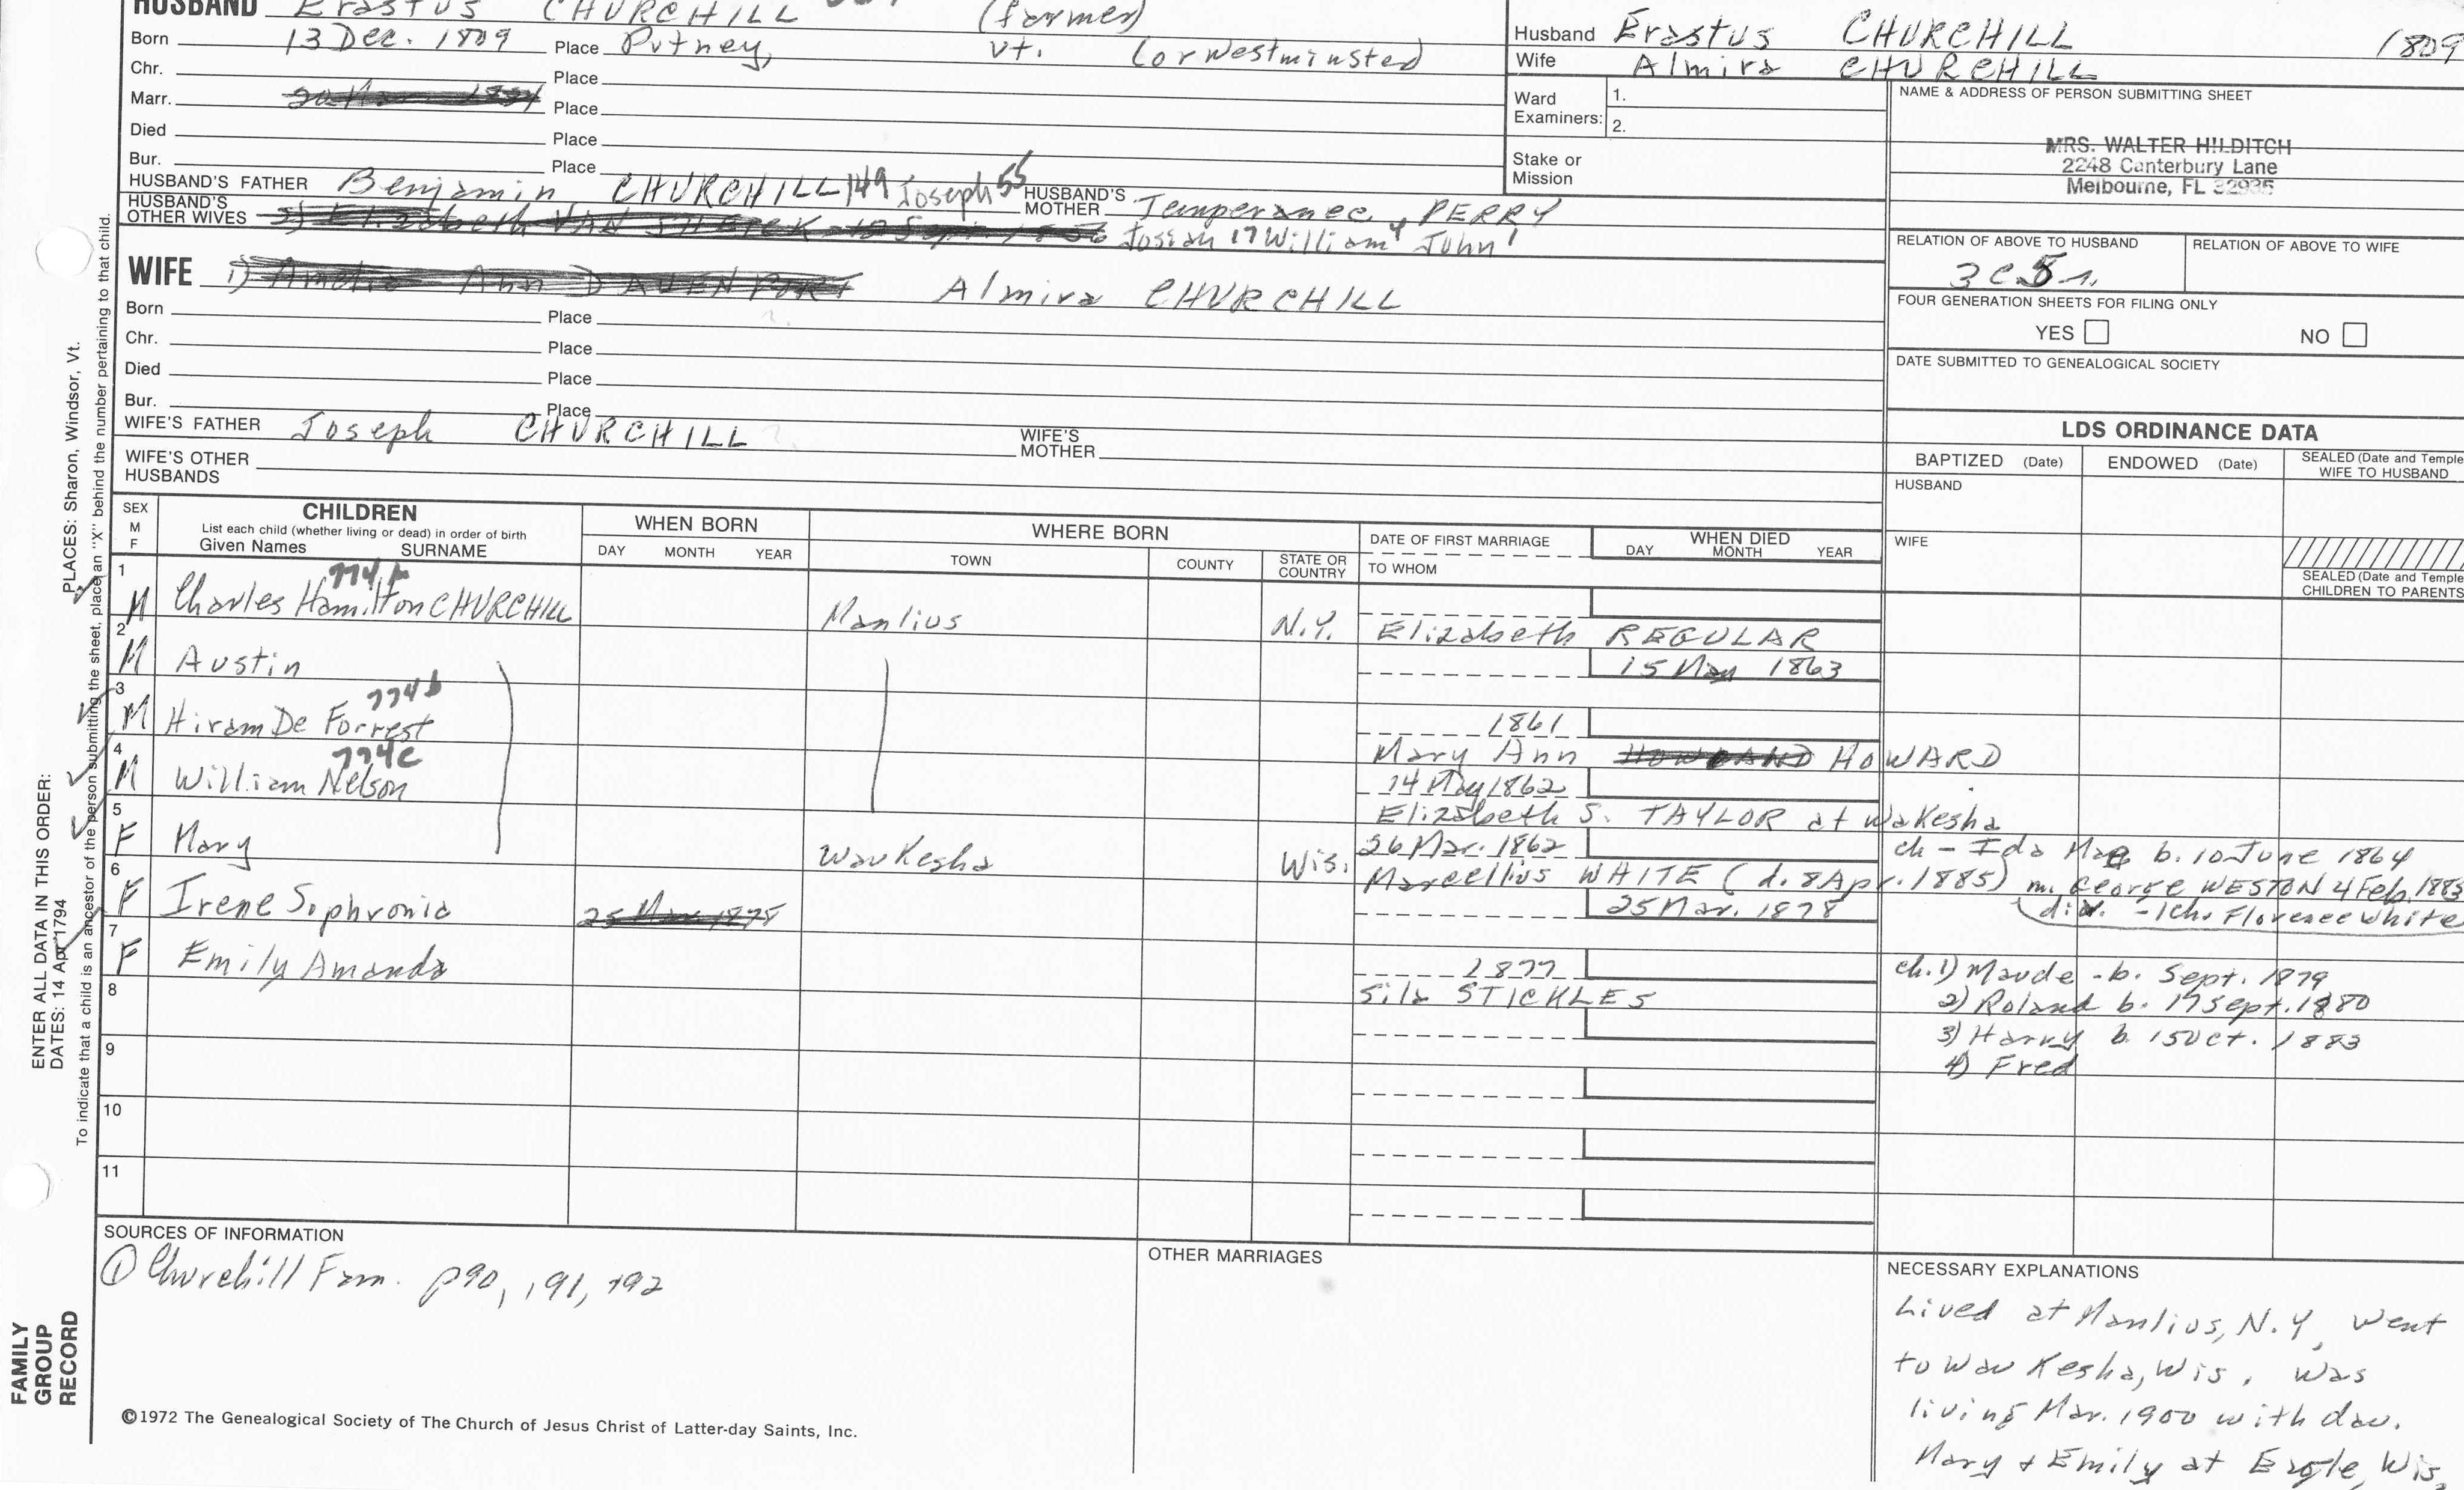 HUSBAND Erastus CHURCHILL (farmer)
Born 13 Dec. 1809 Place Putney, Vt. (or Westminster)
Chr. Place
Marr. Place
Died Place
Bur. Place
HUSBAND'S FATHER Benjamin CHURCHILL 149 Joseph 55 HUSBAND'S MOTHER Temperance PERRY
HUSBAND'S OTHER WIVES 2) Elizabeth Josiah 17 William 4 John 1
WIFE 1) Ann DAVENPORT Almira CHURCHILL
Born Place
Chr. Place
Died Place
Bur. Place
WIFE'S FATHER Joseph CHURCHILL ? WIFE'S MOTHER
WIFE'S OTHER HUSBANDS
Husband Erastus CHURCHILL 1809
Wife Almira CHURCHILL
Ward Examiners: 1.
2.
Stake or Mission
NAME & ADDRESS OF PERSON SUBMITTING SHEET
MRS. WALTER HILDITCH
2248 Canterbury Lane
Melbourne, FL 32935
RELATION OF ABOVE TO HUSBAND RELATION OF ABOVE TO WIFE
3 C 5 r.
FOUR GENERATION SHEETS FOR FILING ONLY
YES NO
DATE SUBMITTED TO GENEALOGICAL SOCIETY
LDS ORDINANCE DATA
BAPTIZED (Date) ENDOWED (Date) SEALED (Date and Temple
WIFE TO HUSBAND
HUSBAND
WIFE
SEALED (Date and Temple
CHILDREN TO PARENTS
SEX M F
CHILDREN
List each child (whether living or dead) in order of birth
Given Names SURNAME
WHEN BORN
DAY MONTH YEAR
WHERE BORN
TOWN COUNTY STATE OR COUNTRY
DATE OF FIRST MARRIAGE
TO WHOM
WHEN DIED
DAY MONTH YEAR
1 774
M Charles Hamilton CHURCHILL Manlius N.Y. Elizabeth REGULAR
2
M Austin 15 May 1863
3 774b
M Hiram De Forrest 1861
Mary Ann HOWARD
4 774c
M William Nelson 14 May 1862
Elizabeth S. TAYLOR at Wakesha
5
F Mary Waukesha Wis. 26 Mar. 1862 ch - Ida Mae b. 10 June 1864
Marcellius WHITE (d. 8 Apr. 1885) m. George WESTON 4 Feb. 1885
6
F Irene Sophronia 25 Mar 1878 25 Mar. 1878 (div. - 1 ch. Florence White
7
F Emily Amanda 1877
Sila STICKLES
ch. 1) Maude - b. Sept. 1879
2) Roland b. 17 Sept. 1880
3) Harry b. 15 Oct. 1883
4) Fred
8
9
10
11
SOURCES OF INFORMATION
① Churchill Fam. p90, 191, 192
OTHER MARRIAGES
NECESSARY EXPLANATIONS
Lived at Manlius, N.Y, went
to Waukesha, Wis. Was
living Mar. 1900 with dau.
Mary & Emily at Eagle, Wis.
©1972 The Genealogical Society of The Church of Jesus Christ of Latter-day Saints, Inc.
FAMILY GROUP RECORD
ENTER ALL DATA IN THIS ORDER:
DATES: 14 Apr 1794
PLACES: Sharon, Windsor, Vt.
To indicate that a child is an ancestor of the person submitting the sheet, place an "X" behind the number pertaining to that child.